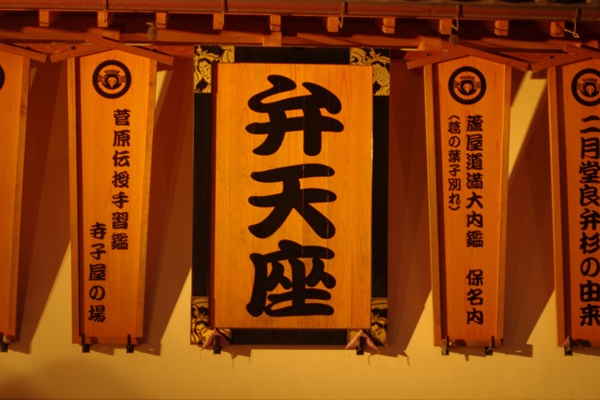 二月堂良弁杉の由来
蘆屋道満大内鑑　保名内
(葛の葉子別れ)
弁天座
菅原伝授手習鑑
寺子屋の場